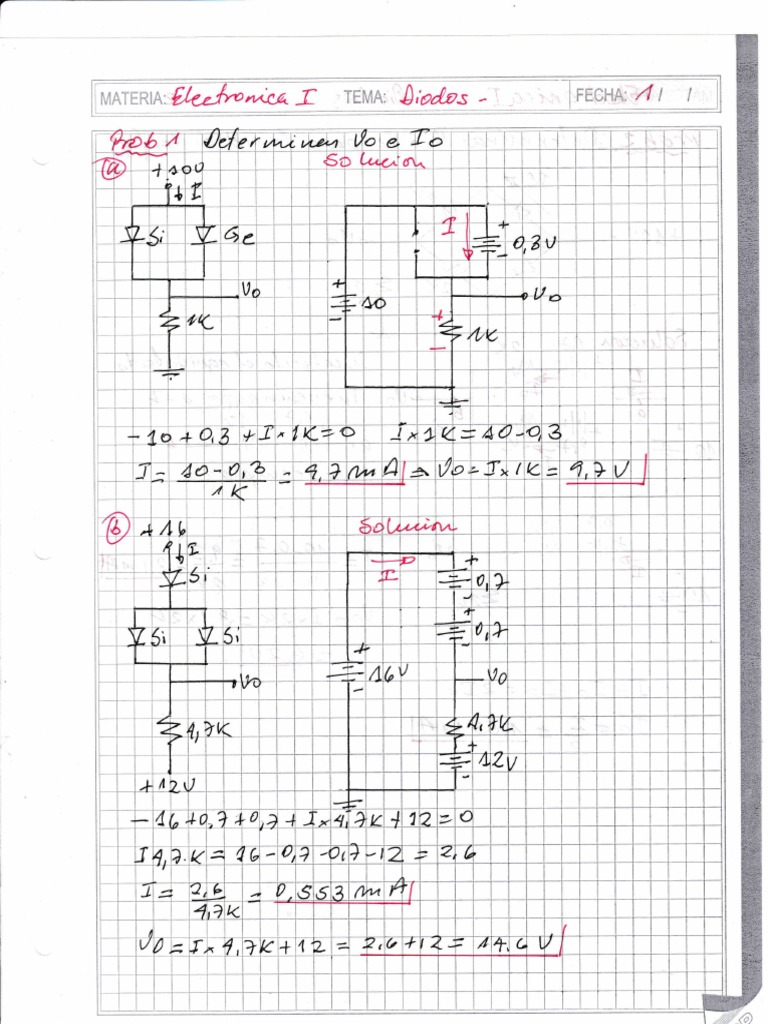 MATERIA: Electronica I TEMA: Diodos - FECHA: 1 / /
Prob 1 Determinen Vo e Io
a +10V Solucion
I
Si Ge I + - 0,3V
Vo + - 10 Vo
1K + - 1K
-10+0,3+I×1K=0 I×1K=10-0,3
I = 10-0,3 / 1K = 9,7mA ⇒ Vo=I×1K= 9,7V
b +16 Solucion
I I + - 0,7
Si
Si Si + - 0,7
Vo + - 16V Vo
4,7K 4,7K
+12V + - 12V
-16+0,7+0,7+I×4,7K+12=0
I4,7.K=16-0,7-0,7-12=2,6
I = 2,6 / 4,7K = 0,553mA
Vo=I×4,7K+12 = 2.6+12 = 14.6 V